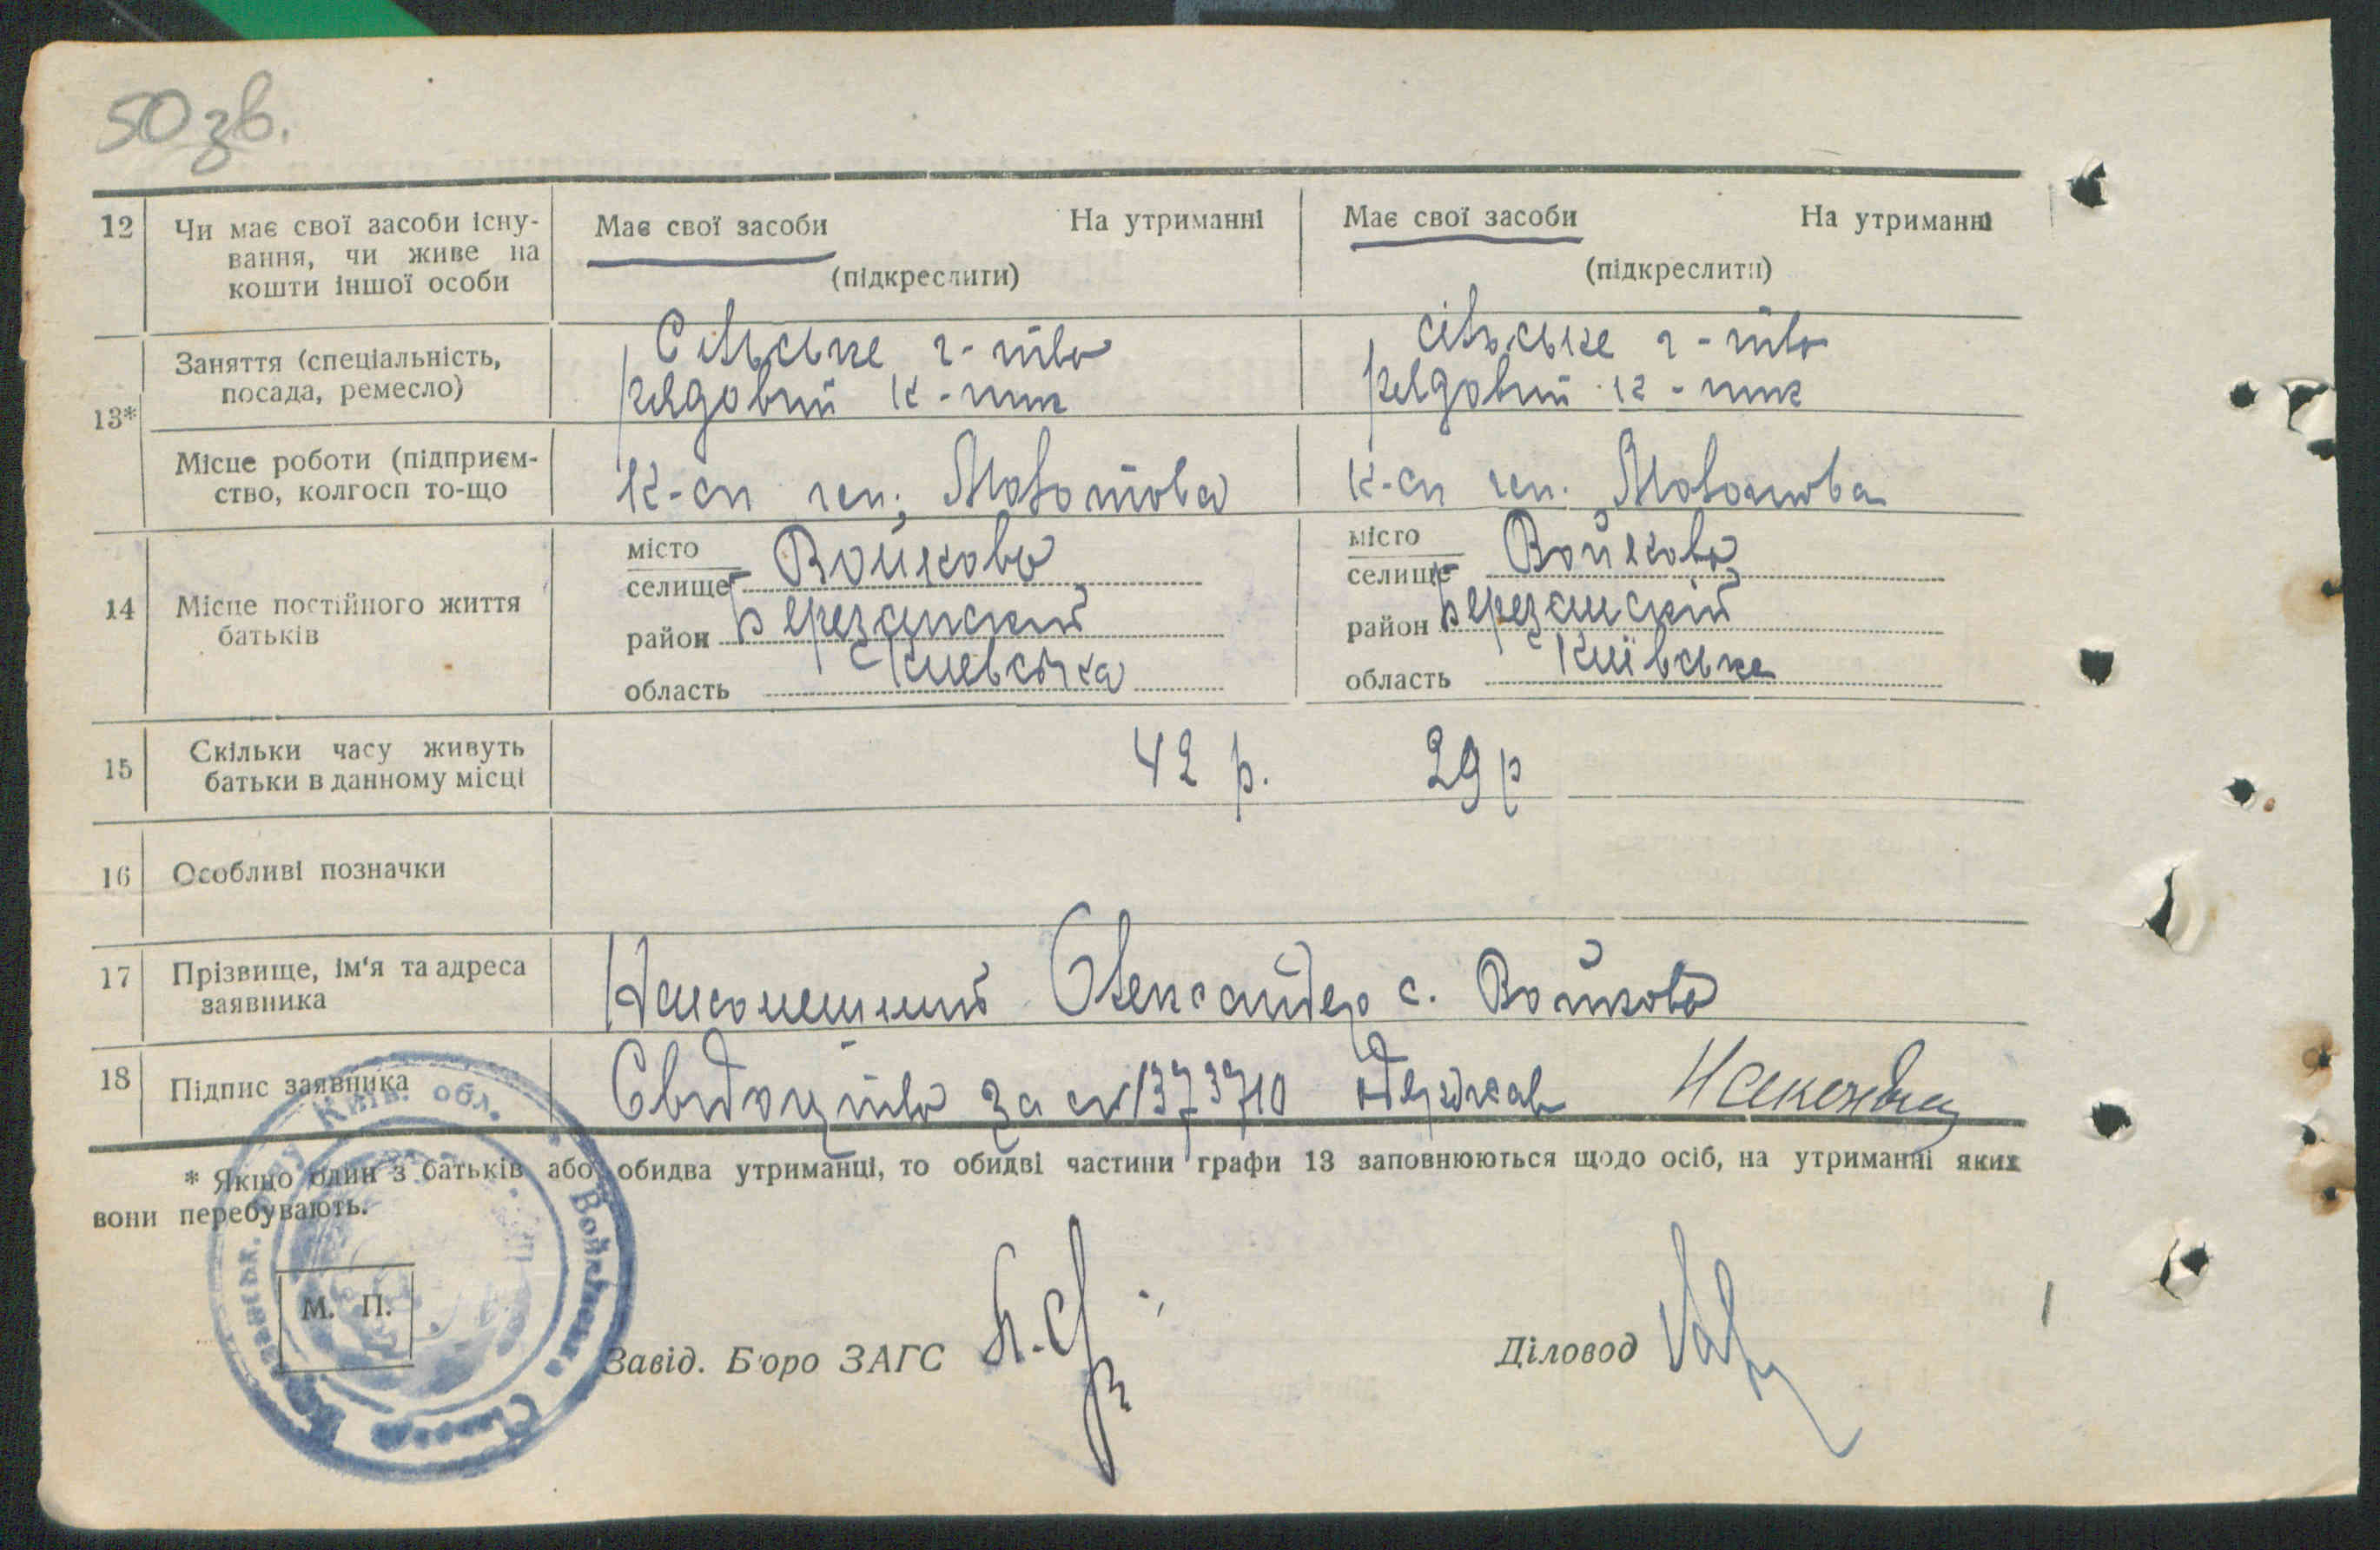 50 зв.
12 Чи має свої засоби існу-
вання, чи живе на
кошти іншої особи
Має свої засоби На утриманні
(підкреслити)
Має свої засоби На утриманні
(підкреслити)
13*
Заняття (спеціальність,
посада, ремесло)
Сільське г-тво
рядовий к-ник
сільське г-тво
рядовий к-ник
Місце роботи (підприєм-
ство, колгосп то-що
к-сп ім. Молотова
к-сп ім. Молотова
14 Місце постійного життя
батьків
місто
селище Войково
район Березанский
область Киевська
місто
селище Войково
район Березанский
область Київське
15 Скільки часу живуть
батьки в данному місці
42 р. 29 р
16 Особливі позначки
17 Прізвище, ім'я та адреса
заявника
Олександер с. Войкова
18 Підпис заявника
Свидоцтво за № 373710 одержав
* Якщо один з батьків або обидва утриманці, то обидві частини графи 13 заповнюються щодо осіб, на утриманні яких
вони перебувають.
М. П.
Київ. обл.
Завід. Бюро ЗАГС
Діловод